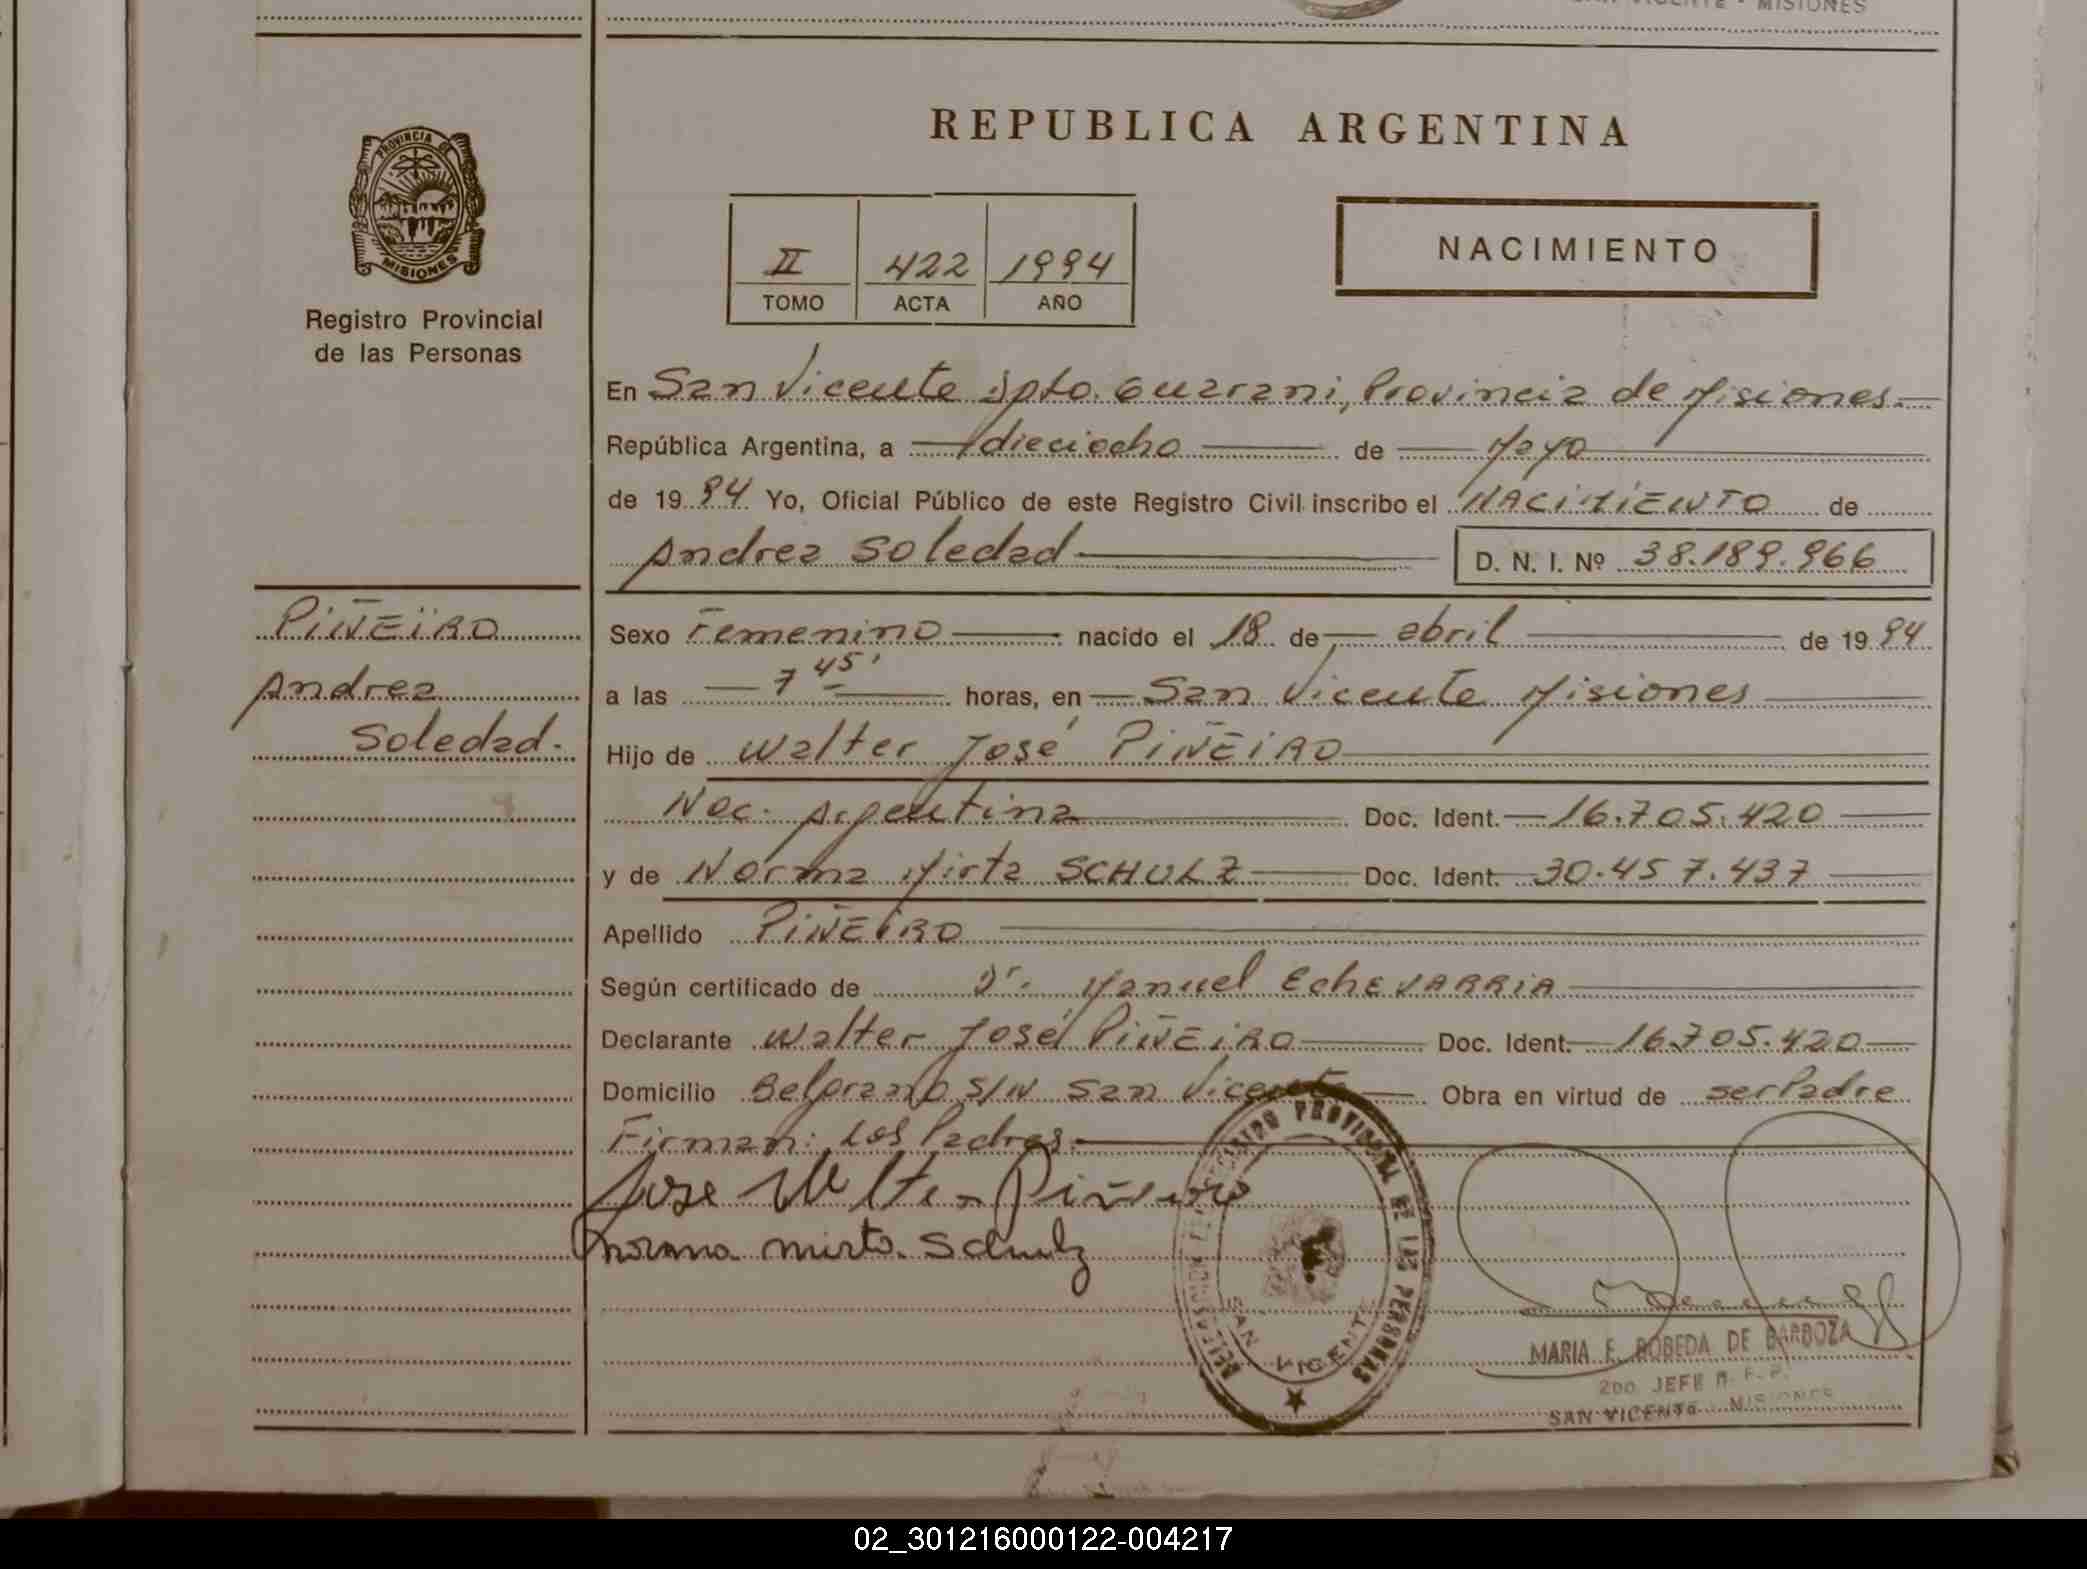 SAN VICENTE - MISIONES
PROVINCIA DE
MISIONES
Registro Provincial
de las Personas
REPUBLICA ARGENTINA
II 422 1994
TOMO ACTA AÑO
NACIMIENTO
En San Vicente Dpto. Guarani, Provincia de Misiones.
República Argentina, a dieciocho de Mayo
de 1994 Yo, Oficial Público de este Registro Civil inscribo el NACIMIENTO de
Andrea Soledad D. N. I. Nº 38.189.966
PIÑEIRO
Andrea
Soledad.
Sexo Femenino nacido el 18 de abril de 1994
a las 7 45' horas, en San Vicente Misiones
Hijo de Walter José PIÑEIRO
Nac. Argentina Doc. Ident. 16.705.420
y de Norma Mirta SCHULZ Doc. Ident. 30.457.437
Apellido PIÑEIRO
Según certificado de Dr. Manuel EcheVARRIA
Declarante Walter José PIÑEIRO Doc. Ident. 16.705.420
Domicilio Belgrano S/N San Vicente Obra en virtud de ser Padre
Firman: Los Padres.
Jose Walter Piñeiro
norma mirta Schulz
REGISTRO PROVINCIAL DE LAS PERSONAS
DELEGACION
SAN VICENTE
MARIA F. BOBEDA DE BARBOZA
2DO. JEFE R. P. P.
SAN VICENTE MISIONES
02_301216000122-004217